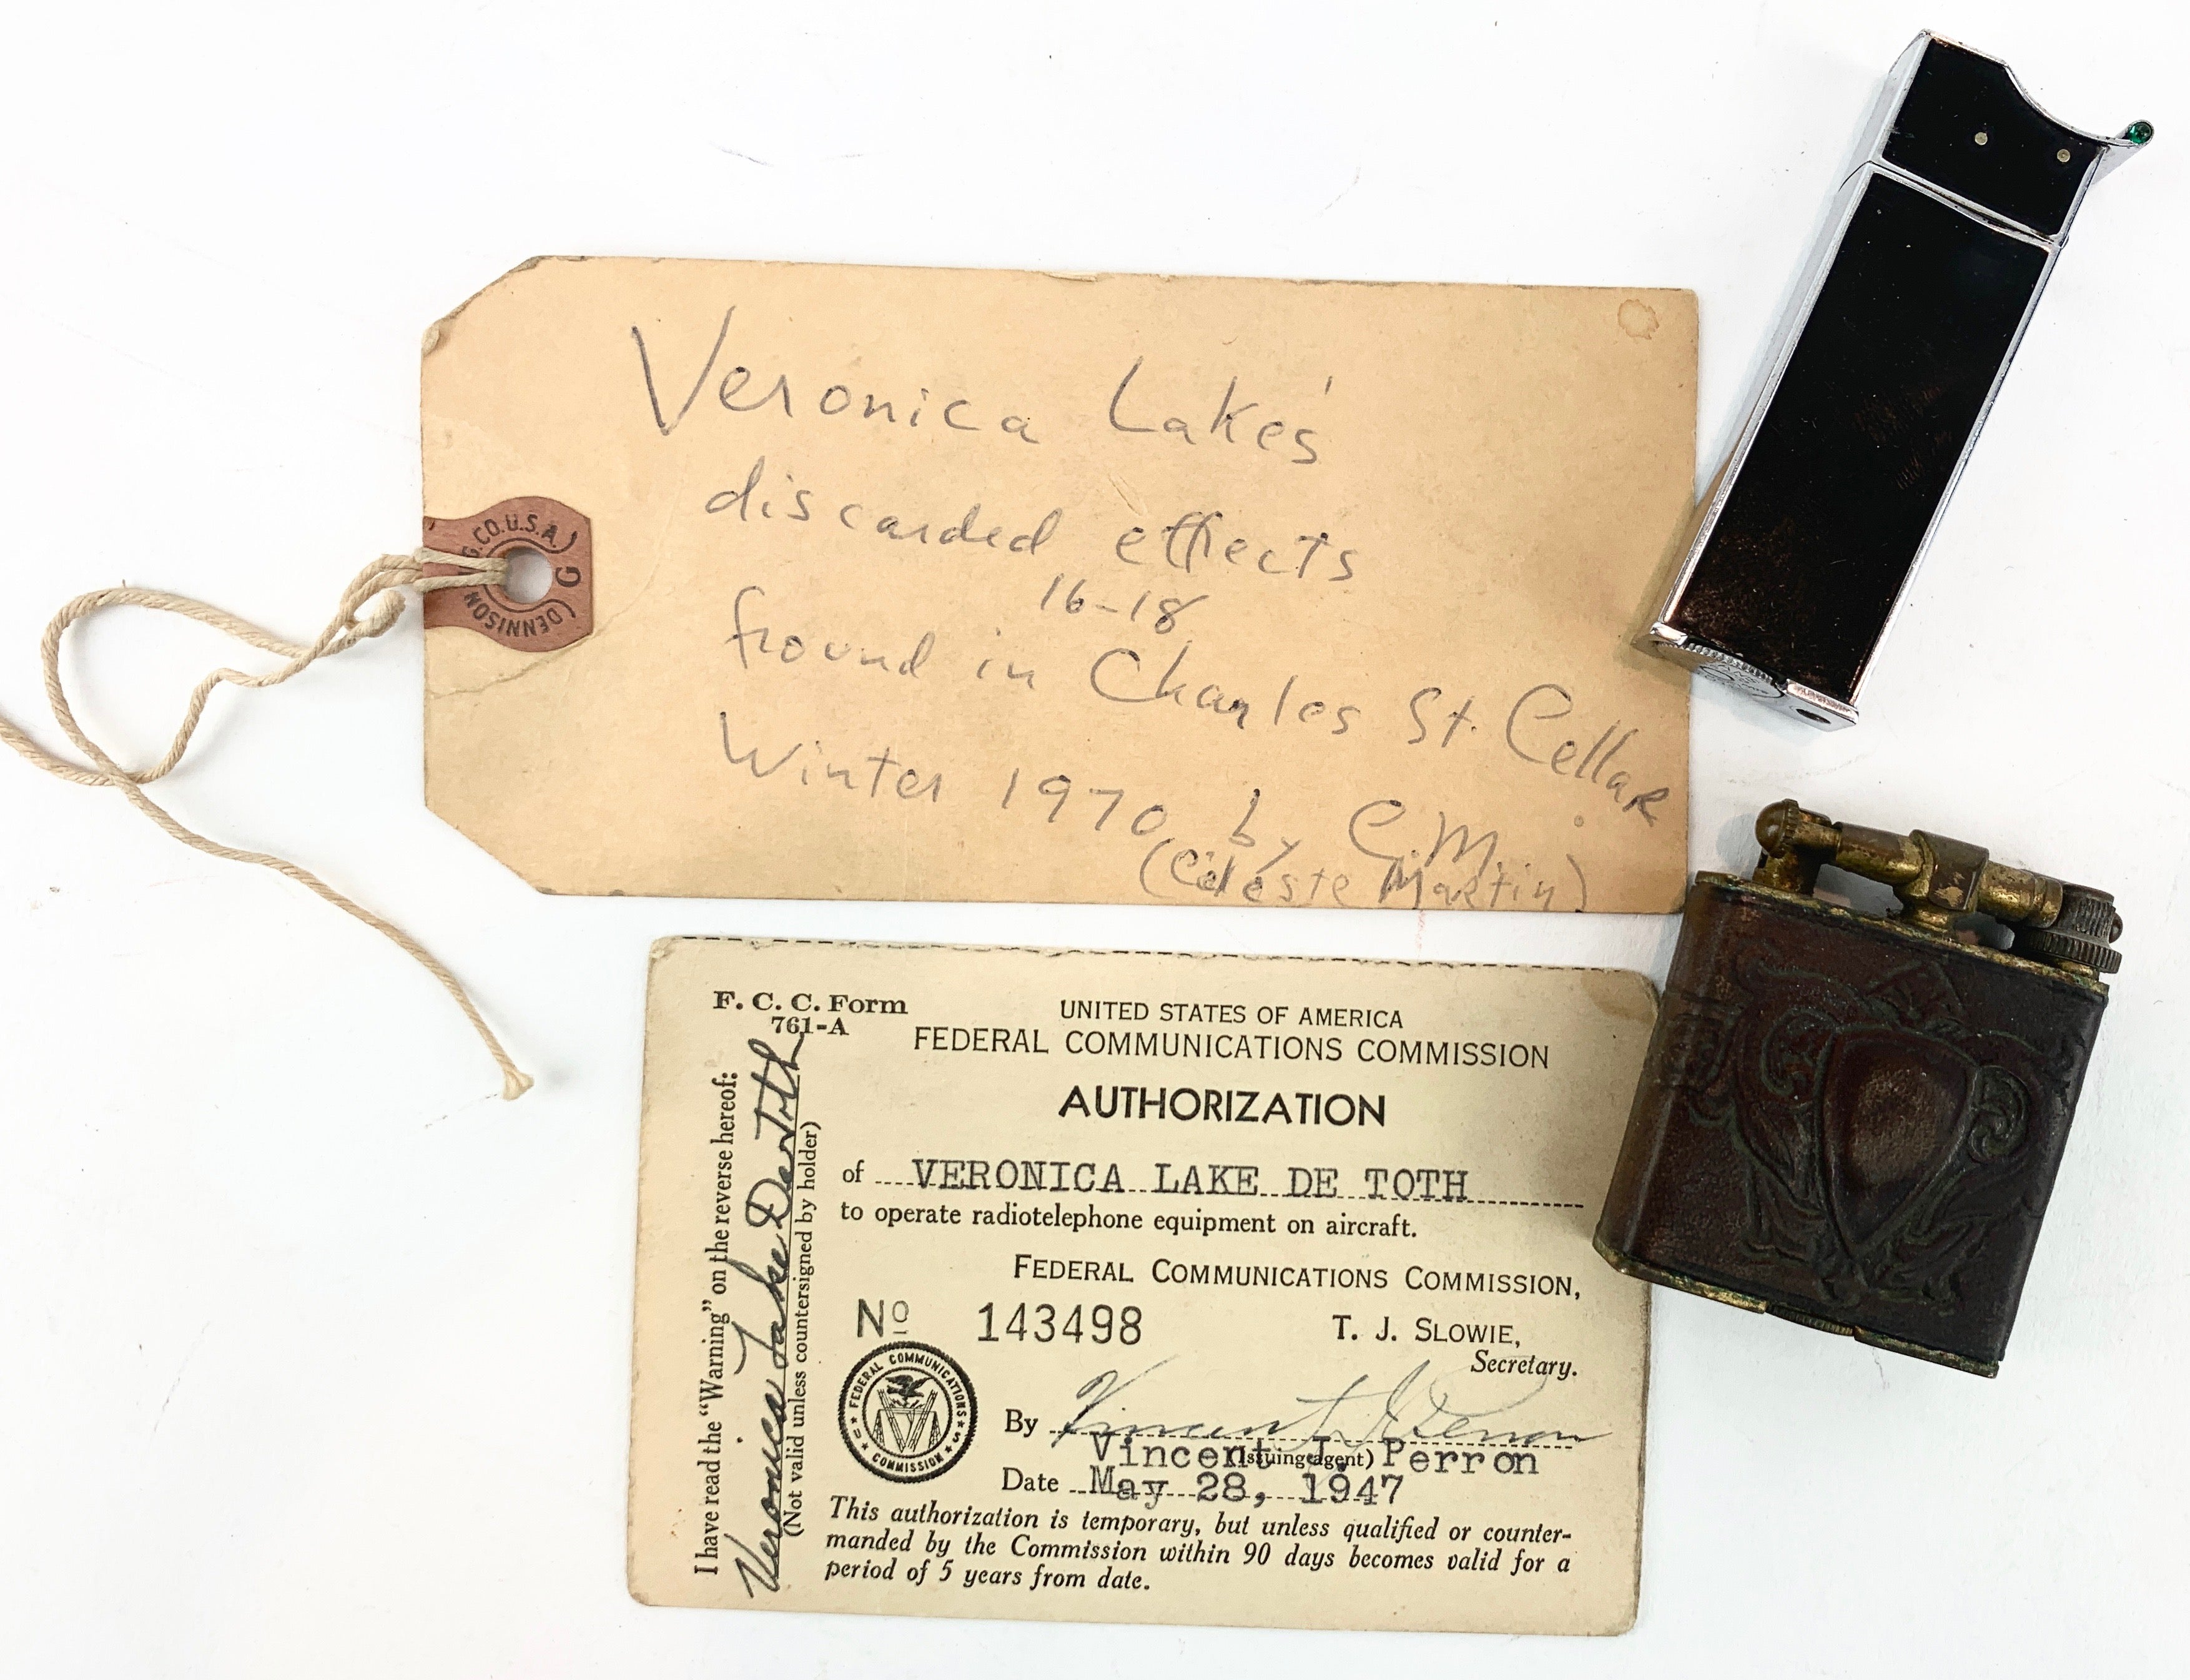 Veronica Lake's
discarded effects
16-18
fround in Charles St. Cellar
Winter 1970 by C.M.
(Celeste Martin)
G.CO.U.S.A.
G
(DENNISON
F. C. C. Form
761-A
UNITED STATES OF AMERICA
FEDERAL COMMUNICATIONS COMMISSION
AUTHORIZATION
of VERONICA LAKE DE TOTH
to operate radiotelephone equipment on aircraft.
FEDERAL COMMUNICATIONS COMMISSION,
No 143498
T. J. SLOWIE,
Secretary.
FEDERAL COMMUNICATIONS
COMMISSION
By Vincent J. Perron
Vincent J. Perron
(Issuing agent)
Date May 28, 1947
This authorization is temporary, but unless qualified or counter-
manded by the Commission within 90 days becomes valid for a
period of 5 years from date.
I have read the "Warning" on the reverse hereof:
Veronica Lake De Toth
(Not valid unless countersigned by holder)